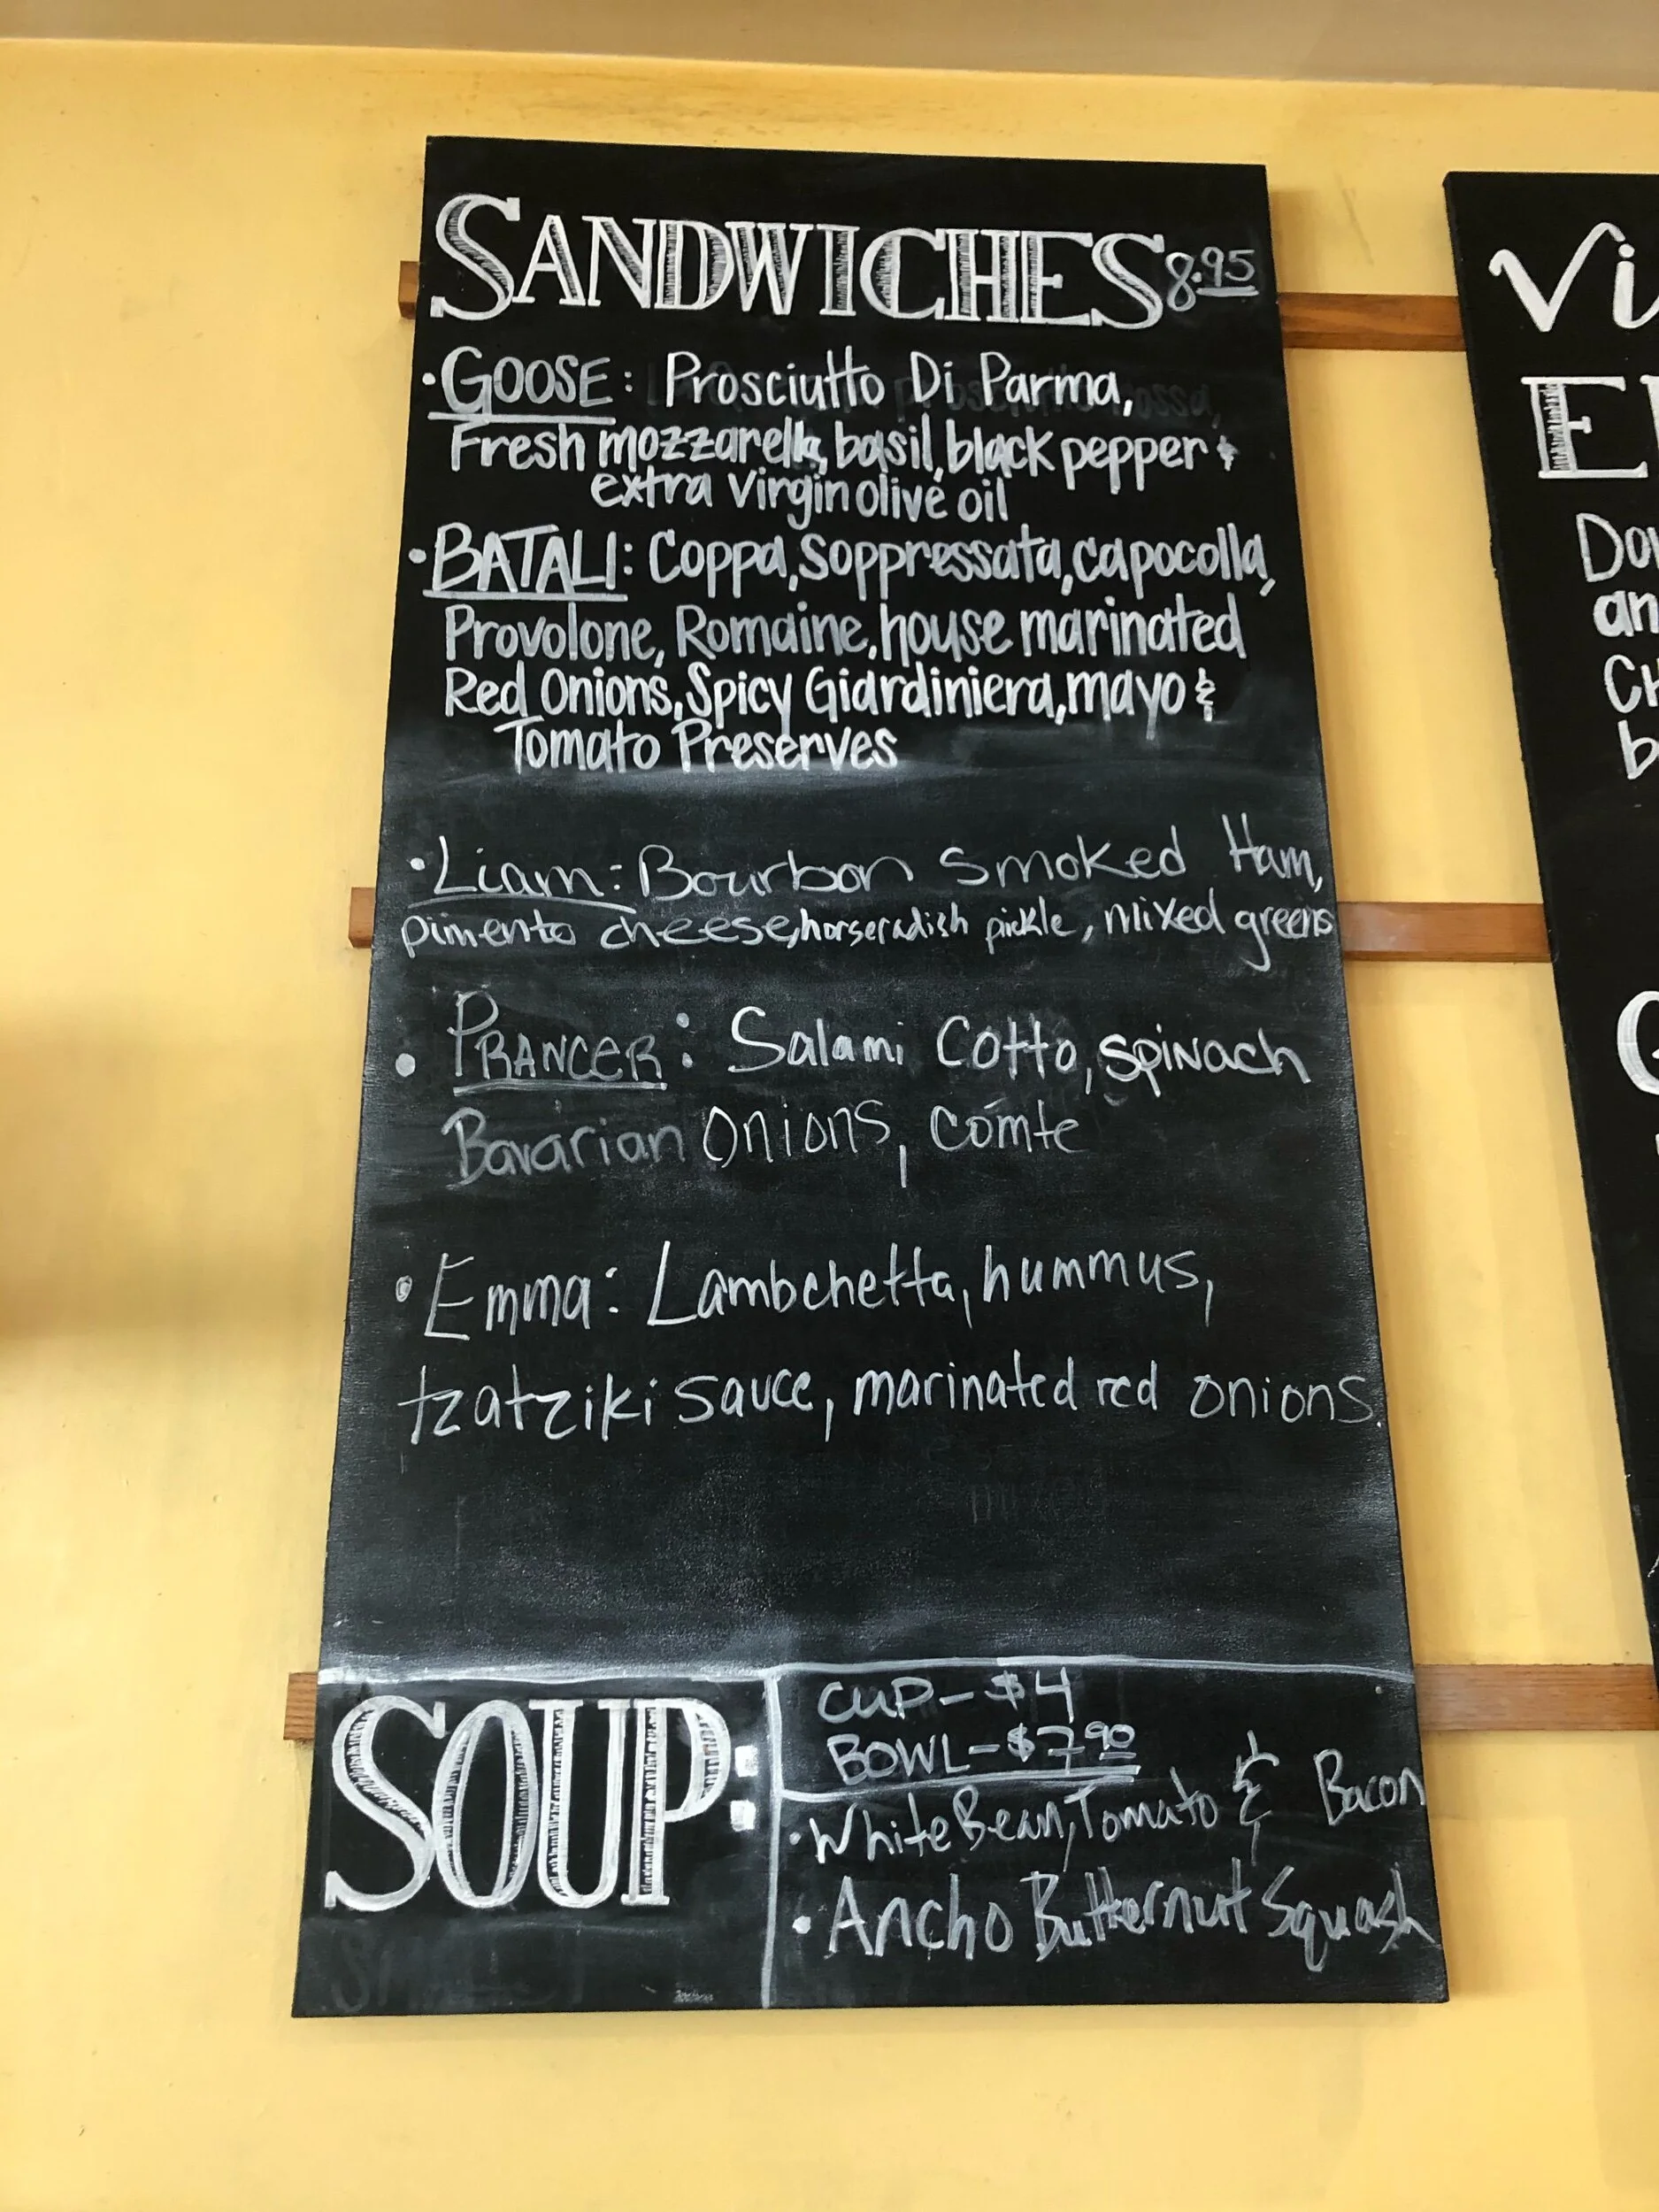 SANDWICHES 8.95
• GOOSE: Prosciutto Di Parma,
Fresh mozzarella, basil, black pepper &
extra virgin olive oil
• BATALI: Coppa, Soppressata, capocolla,
Provolone, Romaine, house marinated
Red Onions, Spicy Giardiniera, mayo &
Tomato Preserves
• Liam: Bourbon Smoked Ham,
pimento cheese, horseradish pickle, mixed greens
• PRANCER: Salami Cotto, spinach
Bavarian Onions, Comte
• Emma: Lambchetta, hummus,
tzatziki sauce, marinated red onions.
SOUP:
CUP - $4
BOWL - $7.90
• White Bean, Tomato & Bacon
• Ancho Butternut Squash
Vi
E
Do
an
Ch
b
G